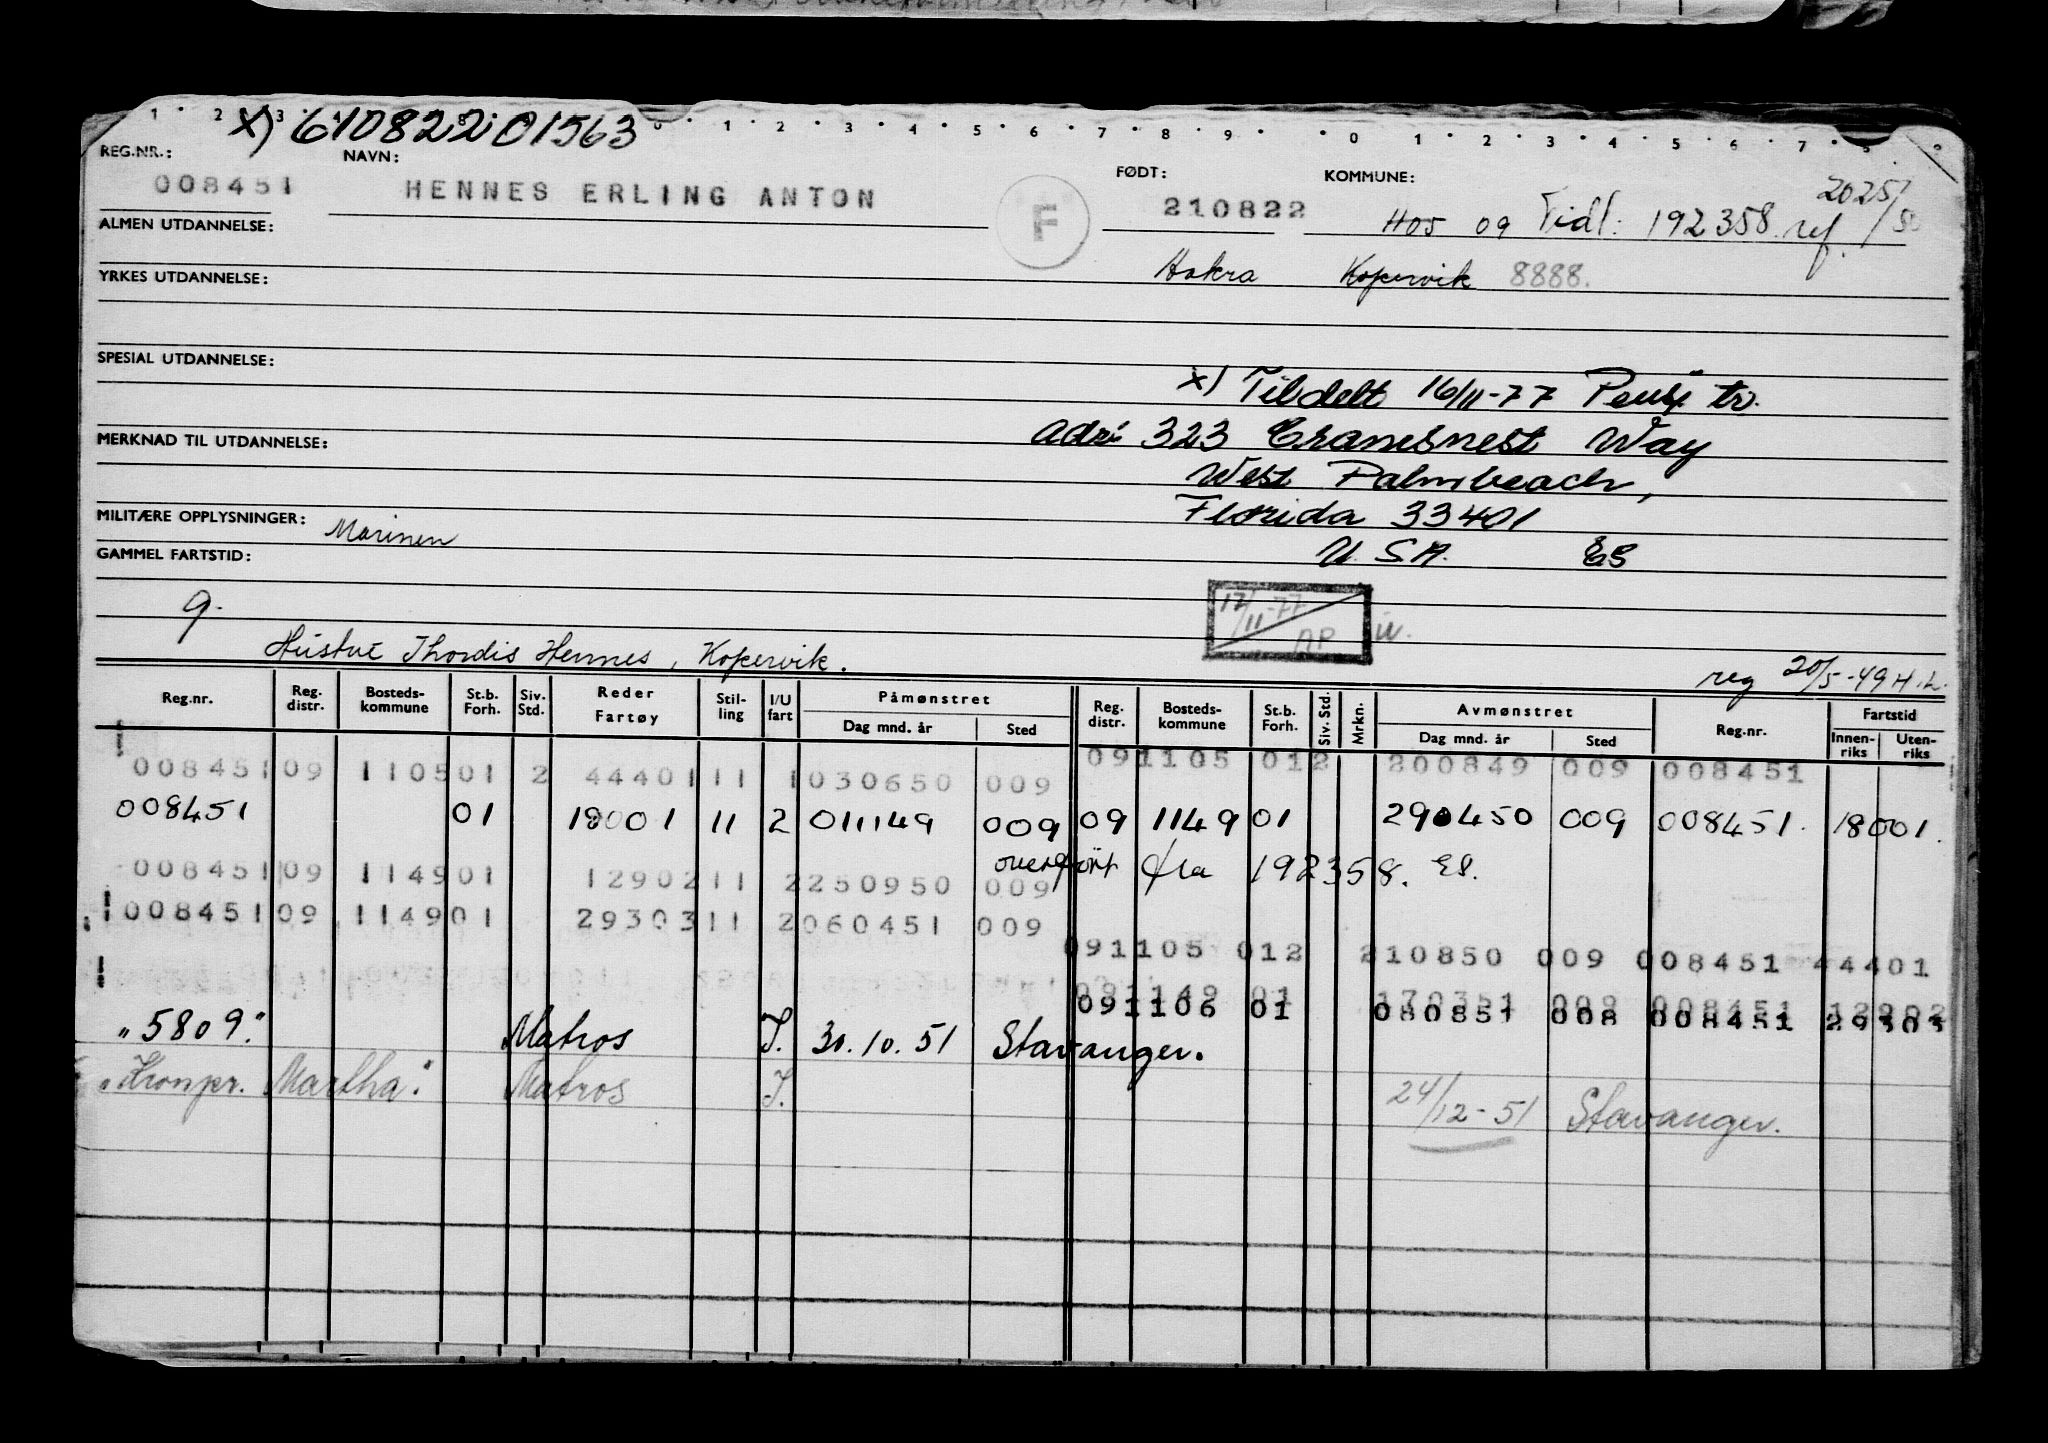 x) 610822 01563
REG.NR.: NAVN: FØDT: KOMMUNE:
008451 HENNES ERLING ANTON F 210822 1105 09 Tidl: 192358 ref. 2025/
ALMEN UTDANNELSE:
Kopervik 8888.
YRKES UTDANNELSE:
SPESIAL UTDANNELSE:
x) Tildelt 16/11-77 tr.
MERKNAD TIL UTDANNELSE: adr: 323 Cranesnest Way
West Palmbeach,
MILITÆRE OPPLYSNINGER: Marinen Florida 33401
GAMMEL FARTSTID: U.S.A. ES
9. 17/11-77 AP
Hustru Thordis Hennes, Kopervik. reg 20/5-49 H.L.
Reg.nr. Reg. distr. Bosteds-kommune St.b. Forh. Siv. Std. Reder Fartøy Stil-ling I/U fart Påmønstret Dag mnd. år Sted Reg. distr. Bosteds-kommune St.b. Forh. Siv. Std. Mrkn. Avmønstret Dag mnd. år Sted Reg.nr. Fartstid Innen-riks Uten-riks
091105 012 200849 009 008451
008451 09 1105 01 2 44401 11 1 030650 009
008451 01 18001 11 2 011149 009 09 1149 01 290450 009 008451. 18001.
overført fra 192358. ES.
008451 09 1149 01 12902 11 2 250950 009
008451 09 1149 01 29303 11 2 060451 009
091105 012 210850 009 008451 44401
091149 01 170351 009 008451 12902
091106 01 080851 008 008451 29303
"5809." Matros I. 30.10.51 Stavanger.
"Kronpr. Martha." Matros I. 24/12-51 Stavanger.